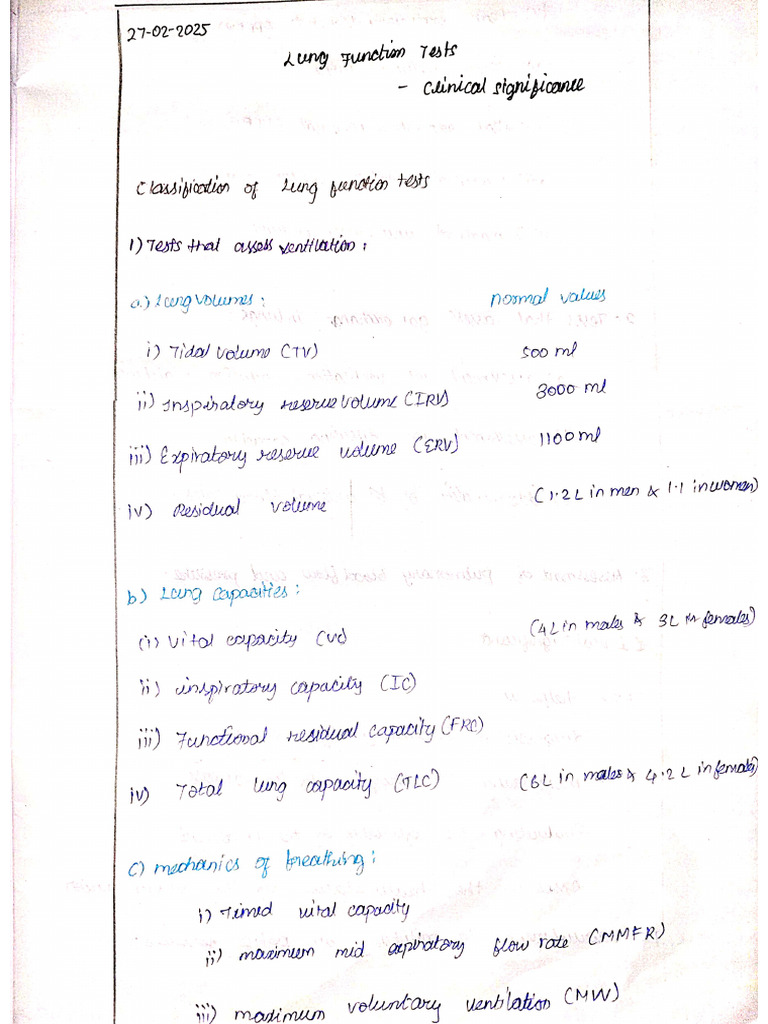 27-02-2025
Lung Function Tests
- Clinical significance
Classification of Lung function tests
1) Tests that assess ventilation :
a.) Lung volumes : normal values
i) Tidal volume (TV) 500 ml
ii) Inspiratory reserve volume (IRV) 3000 ml
iii) Expiratory reserve volume (ERV) 1100 ml
iv) Residual volume (1.2 L in men & 1.1 in women)
b) Lung capacities :
(i) vital capacity (VC) (4L in males & 3L in females)
ii) inspiratory capacity (IC)
iii) Functional residual capacity (FRC)
iv) Total lung capacity (TLC) (6L in males & 4.2 L in females)
c) mechanics of breathing :
i) Timed vital capacity
ii) maximum mid expiratory flow rate (MMFR)
iii) maximum voluntary ventilation (MVV)